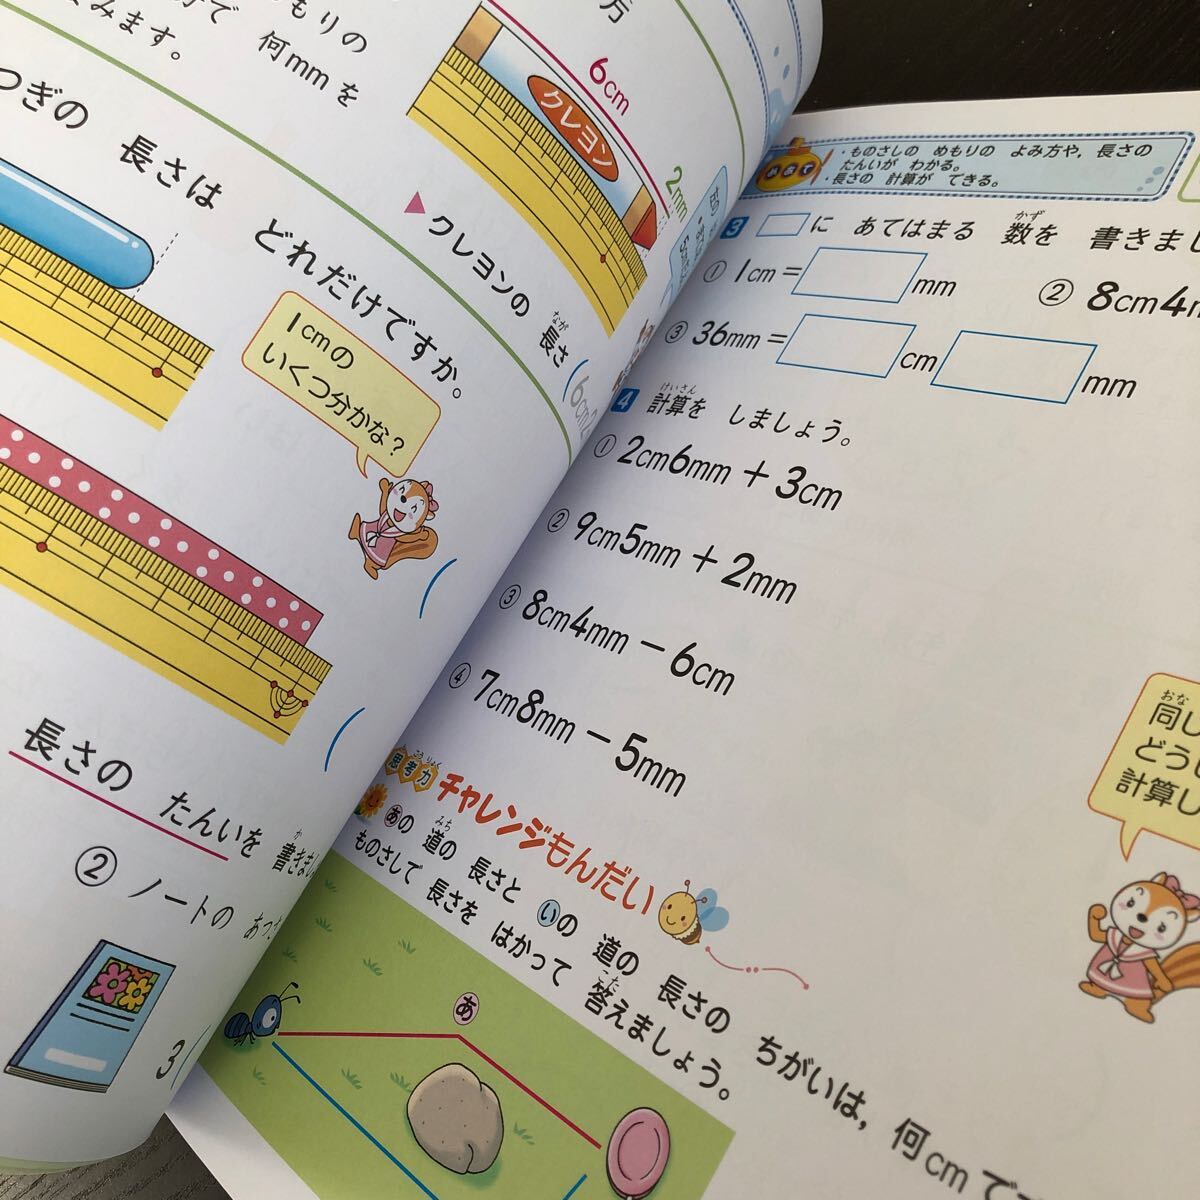 めもりの
で 何mmを
みます。
6cm
クレヨン
2mm
▶クレヨンの 長さ
なが
つぎの 長さは どれだけですか。
1cmの
いくつ分かな?
長さの たんいを 書きまし
か
② ノートの あつ
3
・ものさしの めもりの よみ方や，長さの
たんいが わかる。
・長さの 計算が できる。
めあて
3 □に あてはまる 数を 書きまし
かず
① 1cm= mm
② 8cm4m
③ 36mm= cm mm
4 計算を しましょう。
けいさん
① 2cm6mm+3cm
② 9cm5mm+2mm
③ 8cm4mm−6cm
④ 7cm8mm−5mm
同じ
おな
計算し
思考力 チャレンジもんだい
こうりょく
あの 道の 長さと いの 道の 長さの ちがいは，何cmで
みち
ものさしで 長さを はかって 答えましょう。
こた
あ